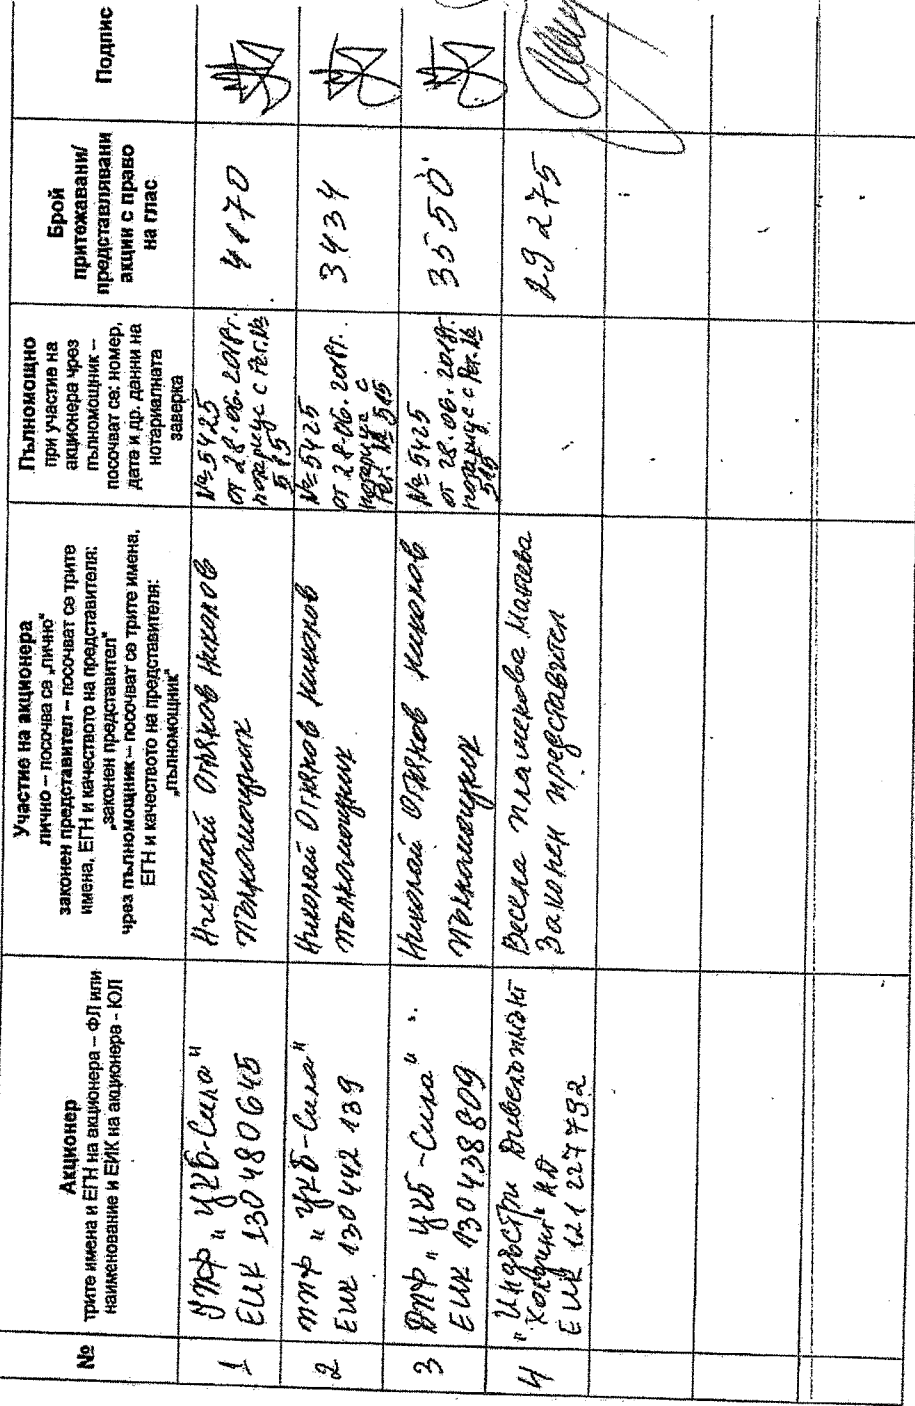 №
Акционер
трите имена и ЕГН на акционера – ФЛ или
наименование и ЕИК на акционера - ЮЛ
Участие на акционера
лично – посочва се „лично"
законен представител – посочват се трите
имена, ЕГН и качеството на представителя:
„законен представител"
чрез пълномощник – посочват се трите имена,
ЕГН и качеството на представителя:
„пълномощник"
Пълномощно
при участие на
акционера чрез
пълномощник –
посочват се: номер,
дата и др. данни на
нотариалната
заверка
Брой
притежавани/
представлявани
акции с право
на глас
Подпис
1
УПФ „ЦКБ-Сила"
ЕИК 130480645
Николай Огнянов Николов
пълномощник
№5425
от 28.06.2018г.
нотариус с Рег.№
515
4170
2
ППФ „ЦКБ-Сила"
ЕИК 130442139
Николай Огнянов Николов
пълномощник
№5425
от 28.06.2018г.
нотариус с
Рег. № 515
3434
3
ДПФ „ЦКБ-Сила"
ЕИК 130438809
Николай Огнянов Николов
пълномощник
№5425
от 28.06.2018г.
нотариус с Рег.№
515
3550
4
"Индъстри Дивелопмънт
Холдинг" АД
ЕИК 121227792
Весела Пламенова Манчева
Законен представител
29275